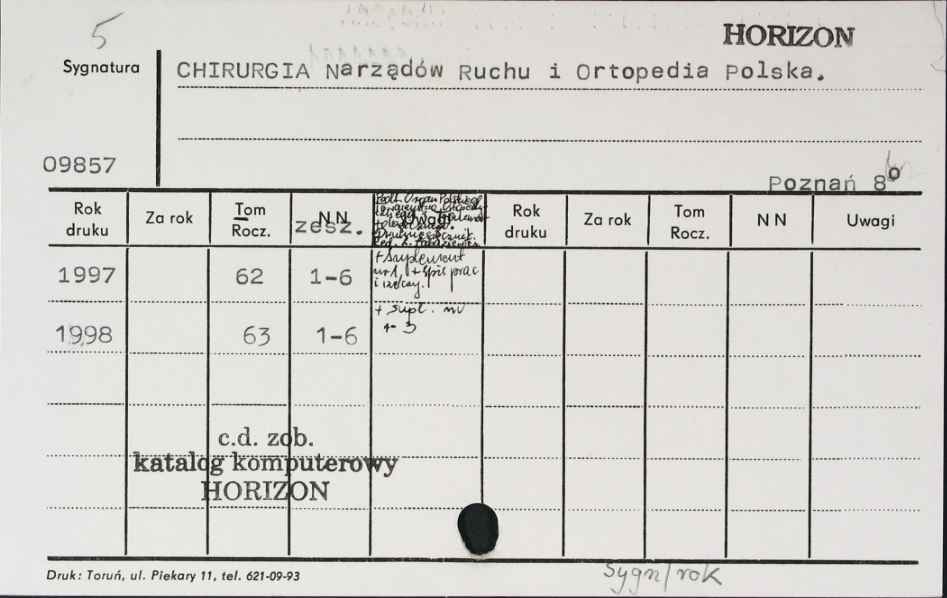 5
HORIZON
Sygnatura
CHIRURGIA Narządów Ruchu i Ortopedia Polska.
09857
Poznań 8º
Rok druku Za rok Tom Rocz. NN zesz. Uwagi Rok druku Za rok Tom Rocz. NN Uwagi
1997 62 1-6 + Suplement
nr 1, + spis prac
i rzeczy.
1998 63 1-6 + supl. nr
1-3
c.d. zob.
katalog komputerowy
HORIZON
Druk: Toruń, ul. Piekary 11, tel. 621-09-93
Sygn/rok